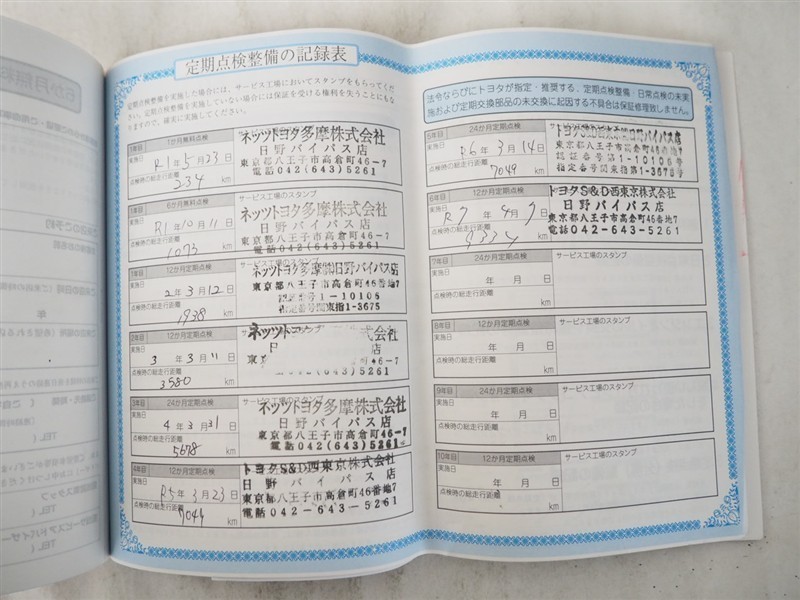 定期点検整備の記録表
定期点検整備を実施した場合には、サービス工場においてスタンプをもらってください。定期点検整備を実施していない場合には保証を受ける権利を失うこともなりますので、確実に実施してください。
1年目 1か月無料点検
実施日
R1年5月23日
点検時の総走行距離
234 km
ネッツトヨタ多摩株式会社
日野バイパス店
東京都八王子市高倉町46-7
電話042(643)5261
1年目 6か月無料点検 サービス工場のスタンプ
実施日
R1年10月11日
点検時の総走行距離
1073 km
ネッツトヨタ多摩株式会社
日野バイパス店
東京都八王子市高倉町46-7
電話042(643)5261
1年目 12か月定期点検
実施日
2年3月12日
点検時の総走行距離
1938 km
ネッツトヨタ多摩㈱日野バイパス店
東京都八王子市高倉町46番地7
認証番号1-10106
指定番号関東指1-3675
2年目 12か月定期点検
実施日
3年3月11日
点検時の総走行距離
3580 km
ネッツト
株式会社
46-7
電話042(643)5261
3年目 24か月定期点検 サービス工場のスタンプ
実施日
4年3月31日
点検時の総走行距離
5678 km
ネッツトヨタ多摩株式会社
日野バイパス店
東京都八王子市高倉町46-7
電話042(643)5261
4年目 12か月定期点検
実施日
R5年3月23日
点検時の総走行距離
km
トヨタS&D西東京株式会社
日野バイパス店
東京都八王子市高倉町46番地7
電話042-643-5261
法令ならびにトヨタが指定・推奨する、定期点検整備・日常点検の未実施および定期交換部品の未交換に起因する不具合は保証修理致しません。
5年目 24か月定期点検
実施日
R6年3月14日
点検時の総走行距離
km
日野バイパス店
東京都八王子市高倉町46番地7
認証番号第1-10106号
指定番号関東指第1-3675号
6年目 12か月定期点検
実施日
R7年4月7日
点検時の総走行距離
km
トヨタS&D西東京株式会社
日野バイパス店
東京都八王子市高倉町46番地7
電話042-643-5261
7年目 24か月定期点検 サービス工場のスタンプ
実施日
年 月 日
点検時の総走行距離
km
8年目 12か月定期点検 サービス工場のスタンプ
実施日
年 月 日
点検時の総走行距離
km
9年目 24か月定期点検 サービス工場のスタンプ
実施日
年 月 日
点検時の総走行距離
km
10年目 12か月定期点検 サービス工場のスタンプ
実施日
年 月 日
点検時の総走行距離
km